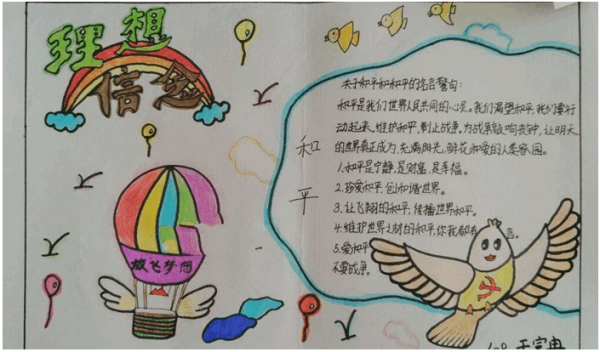 理想
信念
和
平
放飞梦想
关于和平和和平的名言警句：
和平是我们世界人民共同的心灵。我们渴望和平，我们要行
动起来，维护和平，制止战争，为战争敲响丧钟，让明天
的世界真正成为充满阳光，鲜花和爱的人类家园。
1.和平是宁静，是财富，是幸福。
2.珍爱和平，创和谐世界。
3.让飞翔的和平，传播世界和平。
4.维护世界之材的和平，你我都有
5.爱和平
不要战争。